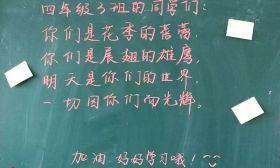 四年级3班的同学们：
你们是花季的蓓蕾，
你们是展翅的雄鹰，
明天是你们的世界，
一切因你们而光辉。
加油，好好学习哦！